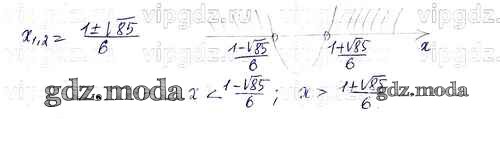 vipgdz.ru vipgdz.ru vipgdz.ru
x₁,₂ = (1±√85)/6
(1-√85)/6 (1+√85)/6 x
gdz.moda x < (1-√85)/6 ; x > (1±√85)/6 gdz.moda